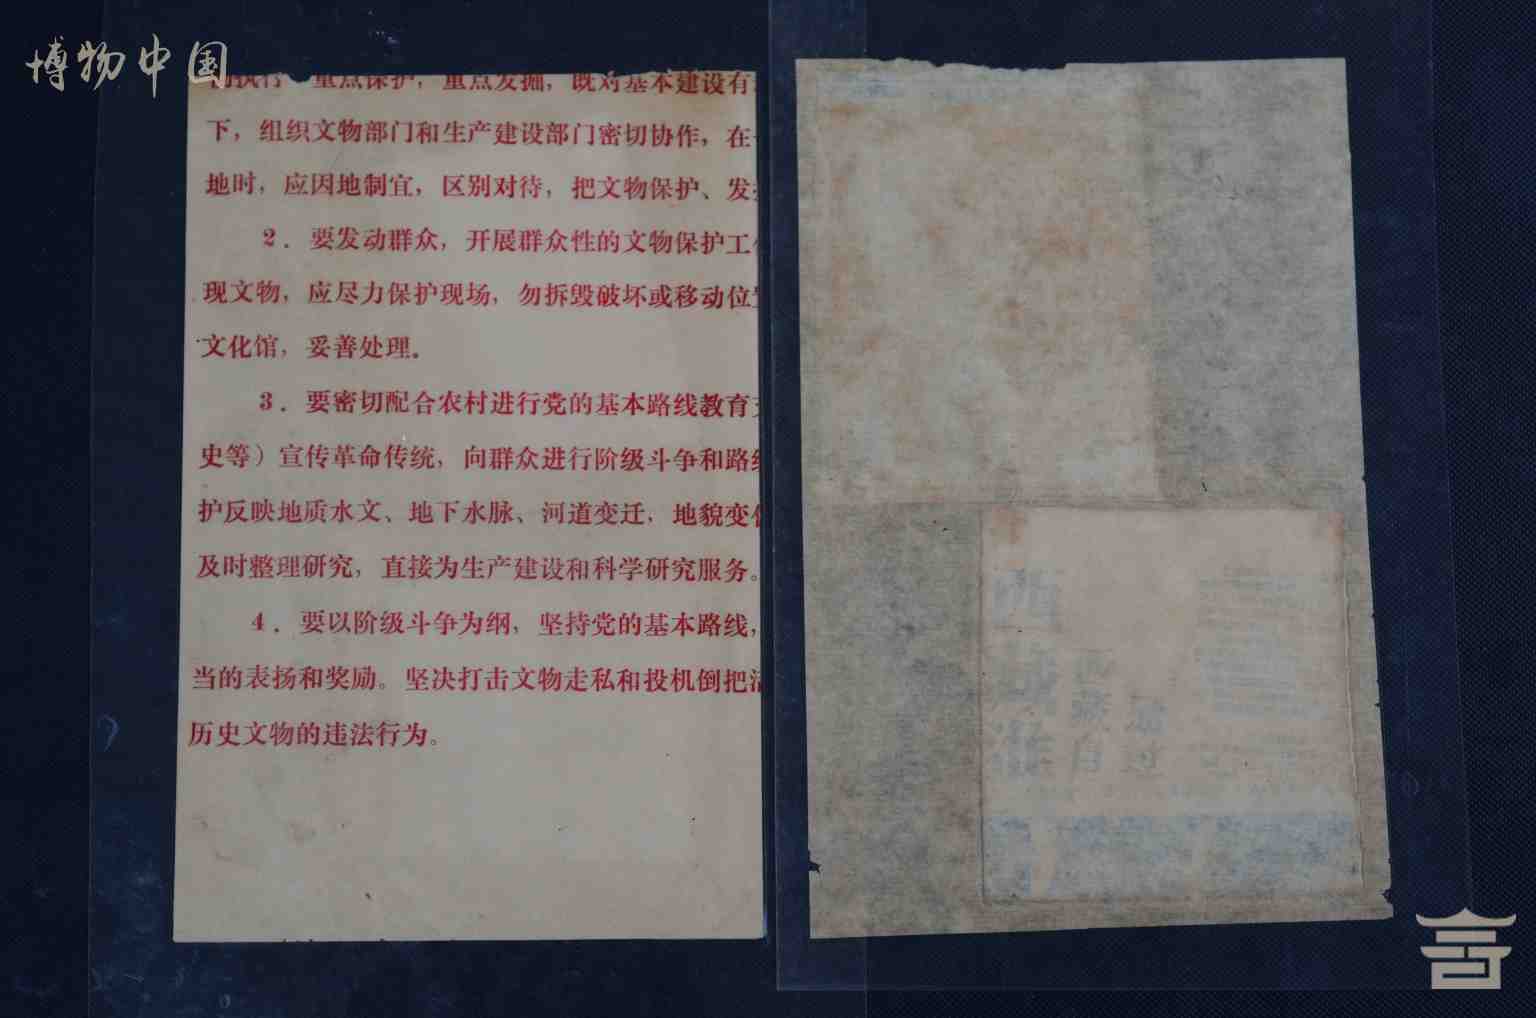 博物中国
的执行"重点保护，重点发掘，既对基本建设有
下，组织文物部门和生产建设部门密切协作，在
地时，应因地制宜，区别对待，把文物保护、发
2．要发动群众，开展群众性的文物保护工
现文物，应尽力保护现场，勿拆毁破坏或移动位
文化馆，妥善处理。
3．要密切配合农村进行党的基本路线教育
史等）宣传革命传统，向群众进行阶级斗争和路
护反映地质水文、地下水脉、河道变迁，地貌变
及时整理研究，直接为生产建设和科学研究服务。
4．要以阶级斗争为纲，坚持党的基本路线，
当的表扬和奖励。坚决打击文物走私和投机倒把
历史文物的违法行为。